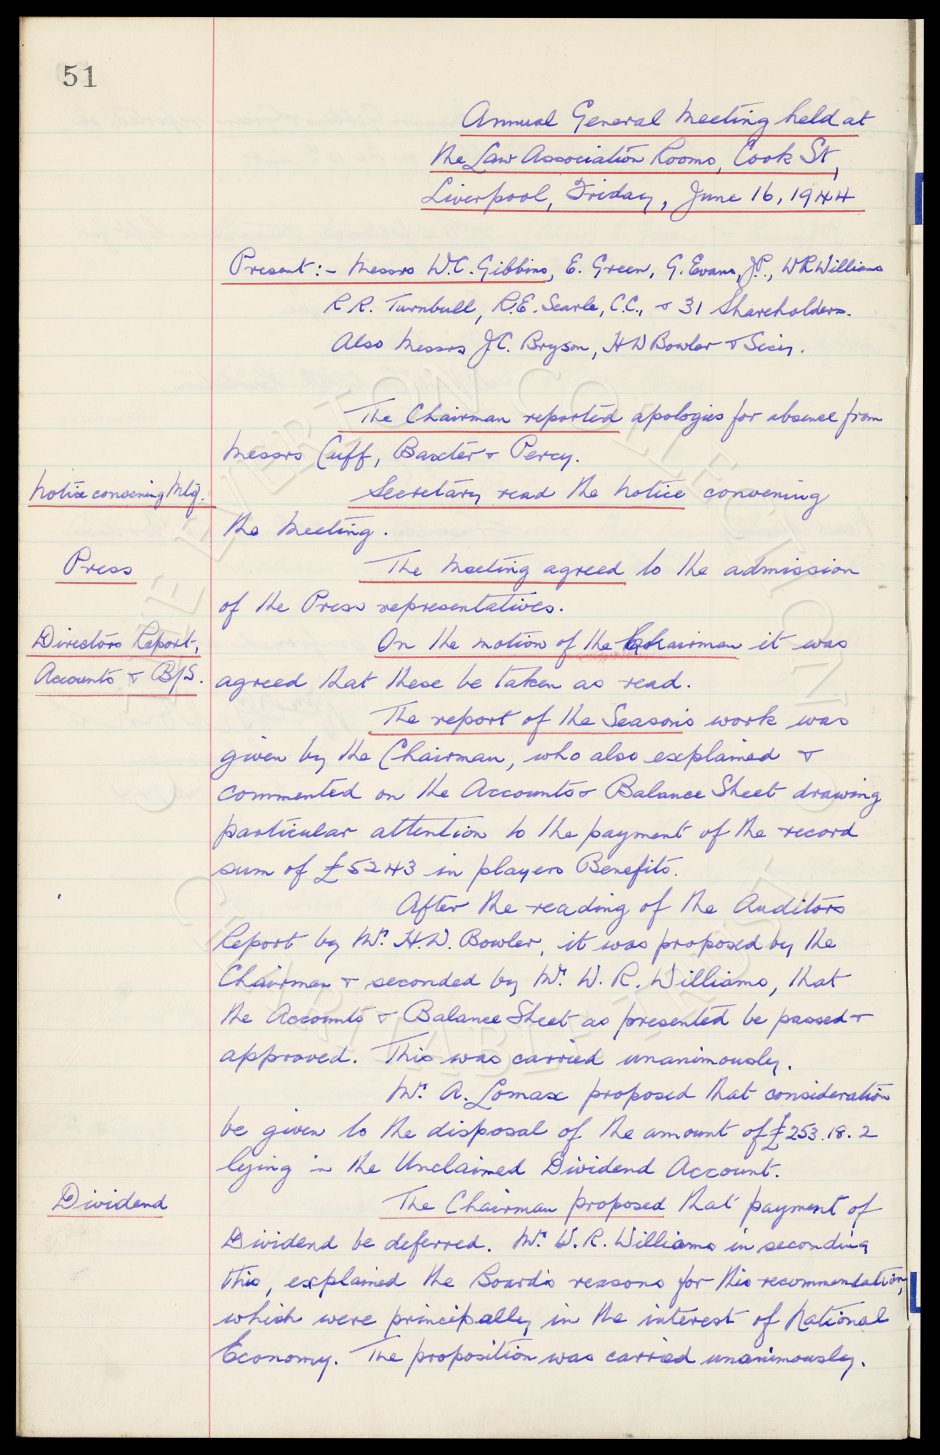 51
Annual General Meeting held at
the Law Association Rooms, Cook St,
Liverpool, Friday, June 16, 1944
Present:- Messrs W.C. Gibbins, E. Green, G. Evans, J.P., W R Williams
R.R. Turnbull, R.E. Searle, C.C., & 31 Shareholders.
Also Messrs J.C. Bryson, H D Bowler & Secy.
The Chairman reported apologies for absence from
Messrs Cuff, Baxter & Percy.
Notice convening Mtg. Secretary read the notice convening
the Meeting.
Press The Meeting agreed to the admission
of the Press representatives.
Directors Report, On the motion of the Chairman it was
Accounts & B/S. agreed that these be taken as read.
The report of the Season's work was
given by the Chairman, who also explained &
commented on the Accounts & Balance Sheet drawing
particular attention to the payment of the record
sum of £5243 in players Benefits.
After the reading of the Auditors
Report by Mr. H.D. Bowler, it was proposed by the
Chairman & seconded by Mr. W. R. Williams, that
the Accounts & Balance Sheet as presented be passed &
approved. This was carried unanimously.
Mr. A. Lomax proposed that consideration
be given to the disposal of the amount of £253.18.2
lying in the Unclaimed Dividend Account.
Dividend The Chairman proposed that payment of
Dividend be deferred. Mr. W. R. Williams in seconding
this, explained the Board's reasons for this recommendation,
which were principally in the interest of National
Economy. The proposition was carried unanimously.
THE EVERTON COLLECTION
CHARITABLE TRUST